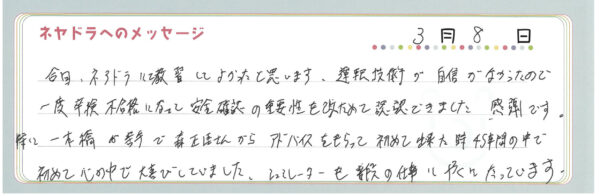 ネヤドラへのメッセージ
3月8日
今日、ネヤドラに教習してよかったと思います、運転技術が自信がなかったので
一度卒検不合格になって安全確認の重要性を改ためて認認できました 感謝です。
特に一本橋が苦手で森正浩さんからアドバイスをもらって初めて出来た時45年間の中で
初めて心の中で大喜びしていました、シュミレーターも the の仕事に役にたっています。